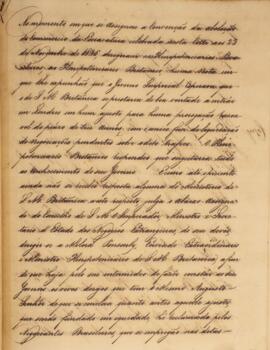 No momento em que se assignou a Convenção da abolição
do Commercio da Escravatura celebrada nesta Corte a 23
de Novembro de 1826 dirigirão os Plenipotenciarios Bra-
sileiros ao Plenipotenciario Britanico huma Nota em
que lhe expunhão que o Governo Imperial esperava que
o de S. M. Britanica se prestaria de boa vontade a entrar
em Londres em hum ajuste para huma prorogação
de tres annos, com o unico fim de
as negociações pendentes sobre aquelle trafico. O Pleni-
potenciario Britanico respondeo que
ao conhecimento do seu Governo. Como até o presente
ainda não se recebeo resposta alguma do Ministerio de
S. M. Britanica a este respeito, julga o abaixo assigna-
do do Conselho de S. M. o Imperador, Ministro e Secre-
tario d'Estado dos Negocios Estrangeiros, do seu dever
dirigir-se a Milord Ponsonby, Enviado Extraordinario
e Ministro Plenipotenciario de S. M. Britanica, a fim
de que haja pelo seu intermedio de fazer constar ao seu
Governo os novos desejos que tem o Mesmo Augusto
Senhor de que se conclua quanto antes aquelle ajuste
que sendo fundado em equidade, he reclamado pelos
Negociantes Brasileiros, que se empregão nas